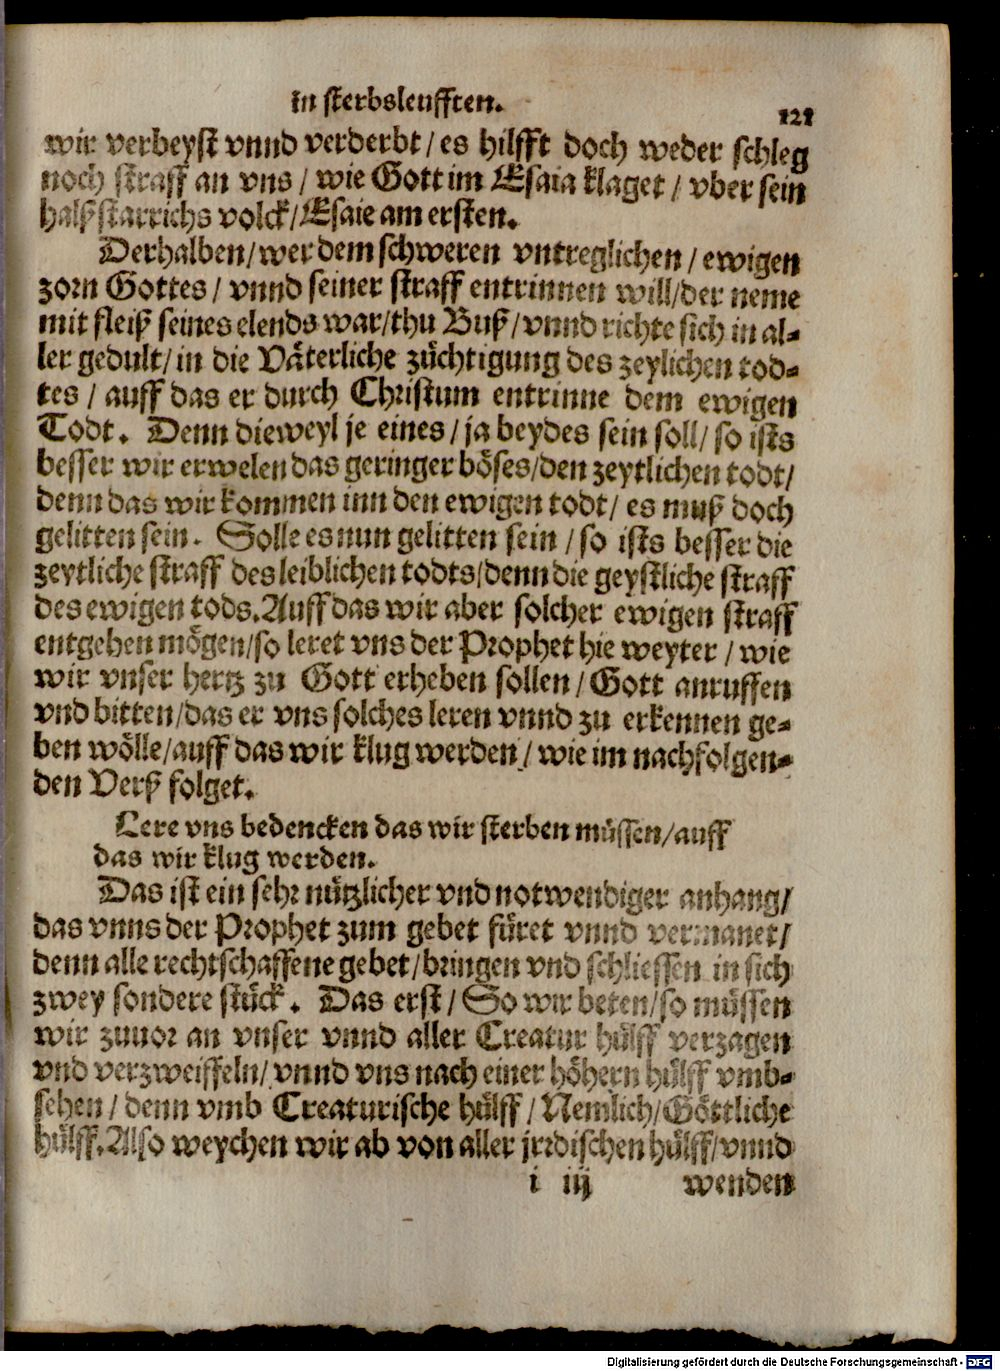 in sterbsleufften.
121
wir verbeyst vnnd verderbt / es hilfft doch weder schleg
noch straff an vns / wie Gott im Esaia klaget / vber sein
halßstarrichs volck / Esaie am ersten.
Derhalben / wer dem schweren vntreglichen / ewigen
zorn Gottes / vnnd seiner straff entrinnen will / der neme
mit fleiß seines elends war / thu Buß / vnnd richte sich in al-
ler gedult / in die Väterliche züchtigung des zeylichen tod-
tes / auff das er durch Christum entrinne dem ewigen
Todt. Denn dieweyl je eines / ja beydes sein soll / so ists
besser wir erwelen das geringer böses / den zeytlichen todt /
denn das wir kommen inn den ewigen todt / es muß doch
gelitten sein. Solle es nun gelitten sein / so ists besser die
zeytliche straff des leiblichen todts / denn die geystliche straff
des ewigen tods. Auff das wir aber solcher ewigen straff
entgehen mögen / so leret vns der Prophet hie weyter / wie
wir vnser hertz zu Gott erheben sollen / Gott anruffen
vnd bitten / das er vns solches leren vnnd zu erkennen ge-
ben wölle / auff das wir klug werden / wie im nachfolgen-
den Verß folget.
Lere vns bedencken das wir sterben müssen / auff
das wir klug werden.
Das ist ein sehr nützlicher vnd notwendiger anhang /
das vnns der Prophet zum gebet füret vnnd vermanet /
denn alle rechtschaffene gebet / bringen vnd schliessen in sich
zwey sondere stück. Das erst / So wir beten / so müssen
wir zuuor an vnser vnnd aller Creatur hülff verzagen
vnd verzweiffeln / vnnd vns nach einer höhern hülff vmb-
sehen / denn vmb Creaturische hülff / Nemlich / Göttliche
hülff. Also weychen wir ab von aller jrrdischen hülff / vnnd
i iij
wenden
Digitalisierung gefördert durch die Deutsche Forschungsgemeinschaft - DFG